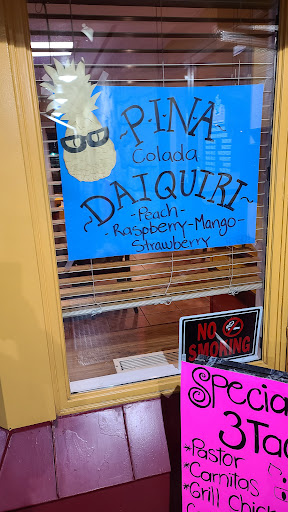 ~P-I-N-A~
Colada
~DAIQUIRI~
-Peach-
-Raspberry-Mango-
Strawberry
NO
SMOKING
Specia
3 Ta
*Pastor
*Carnitas
*Grill Chick